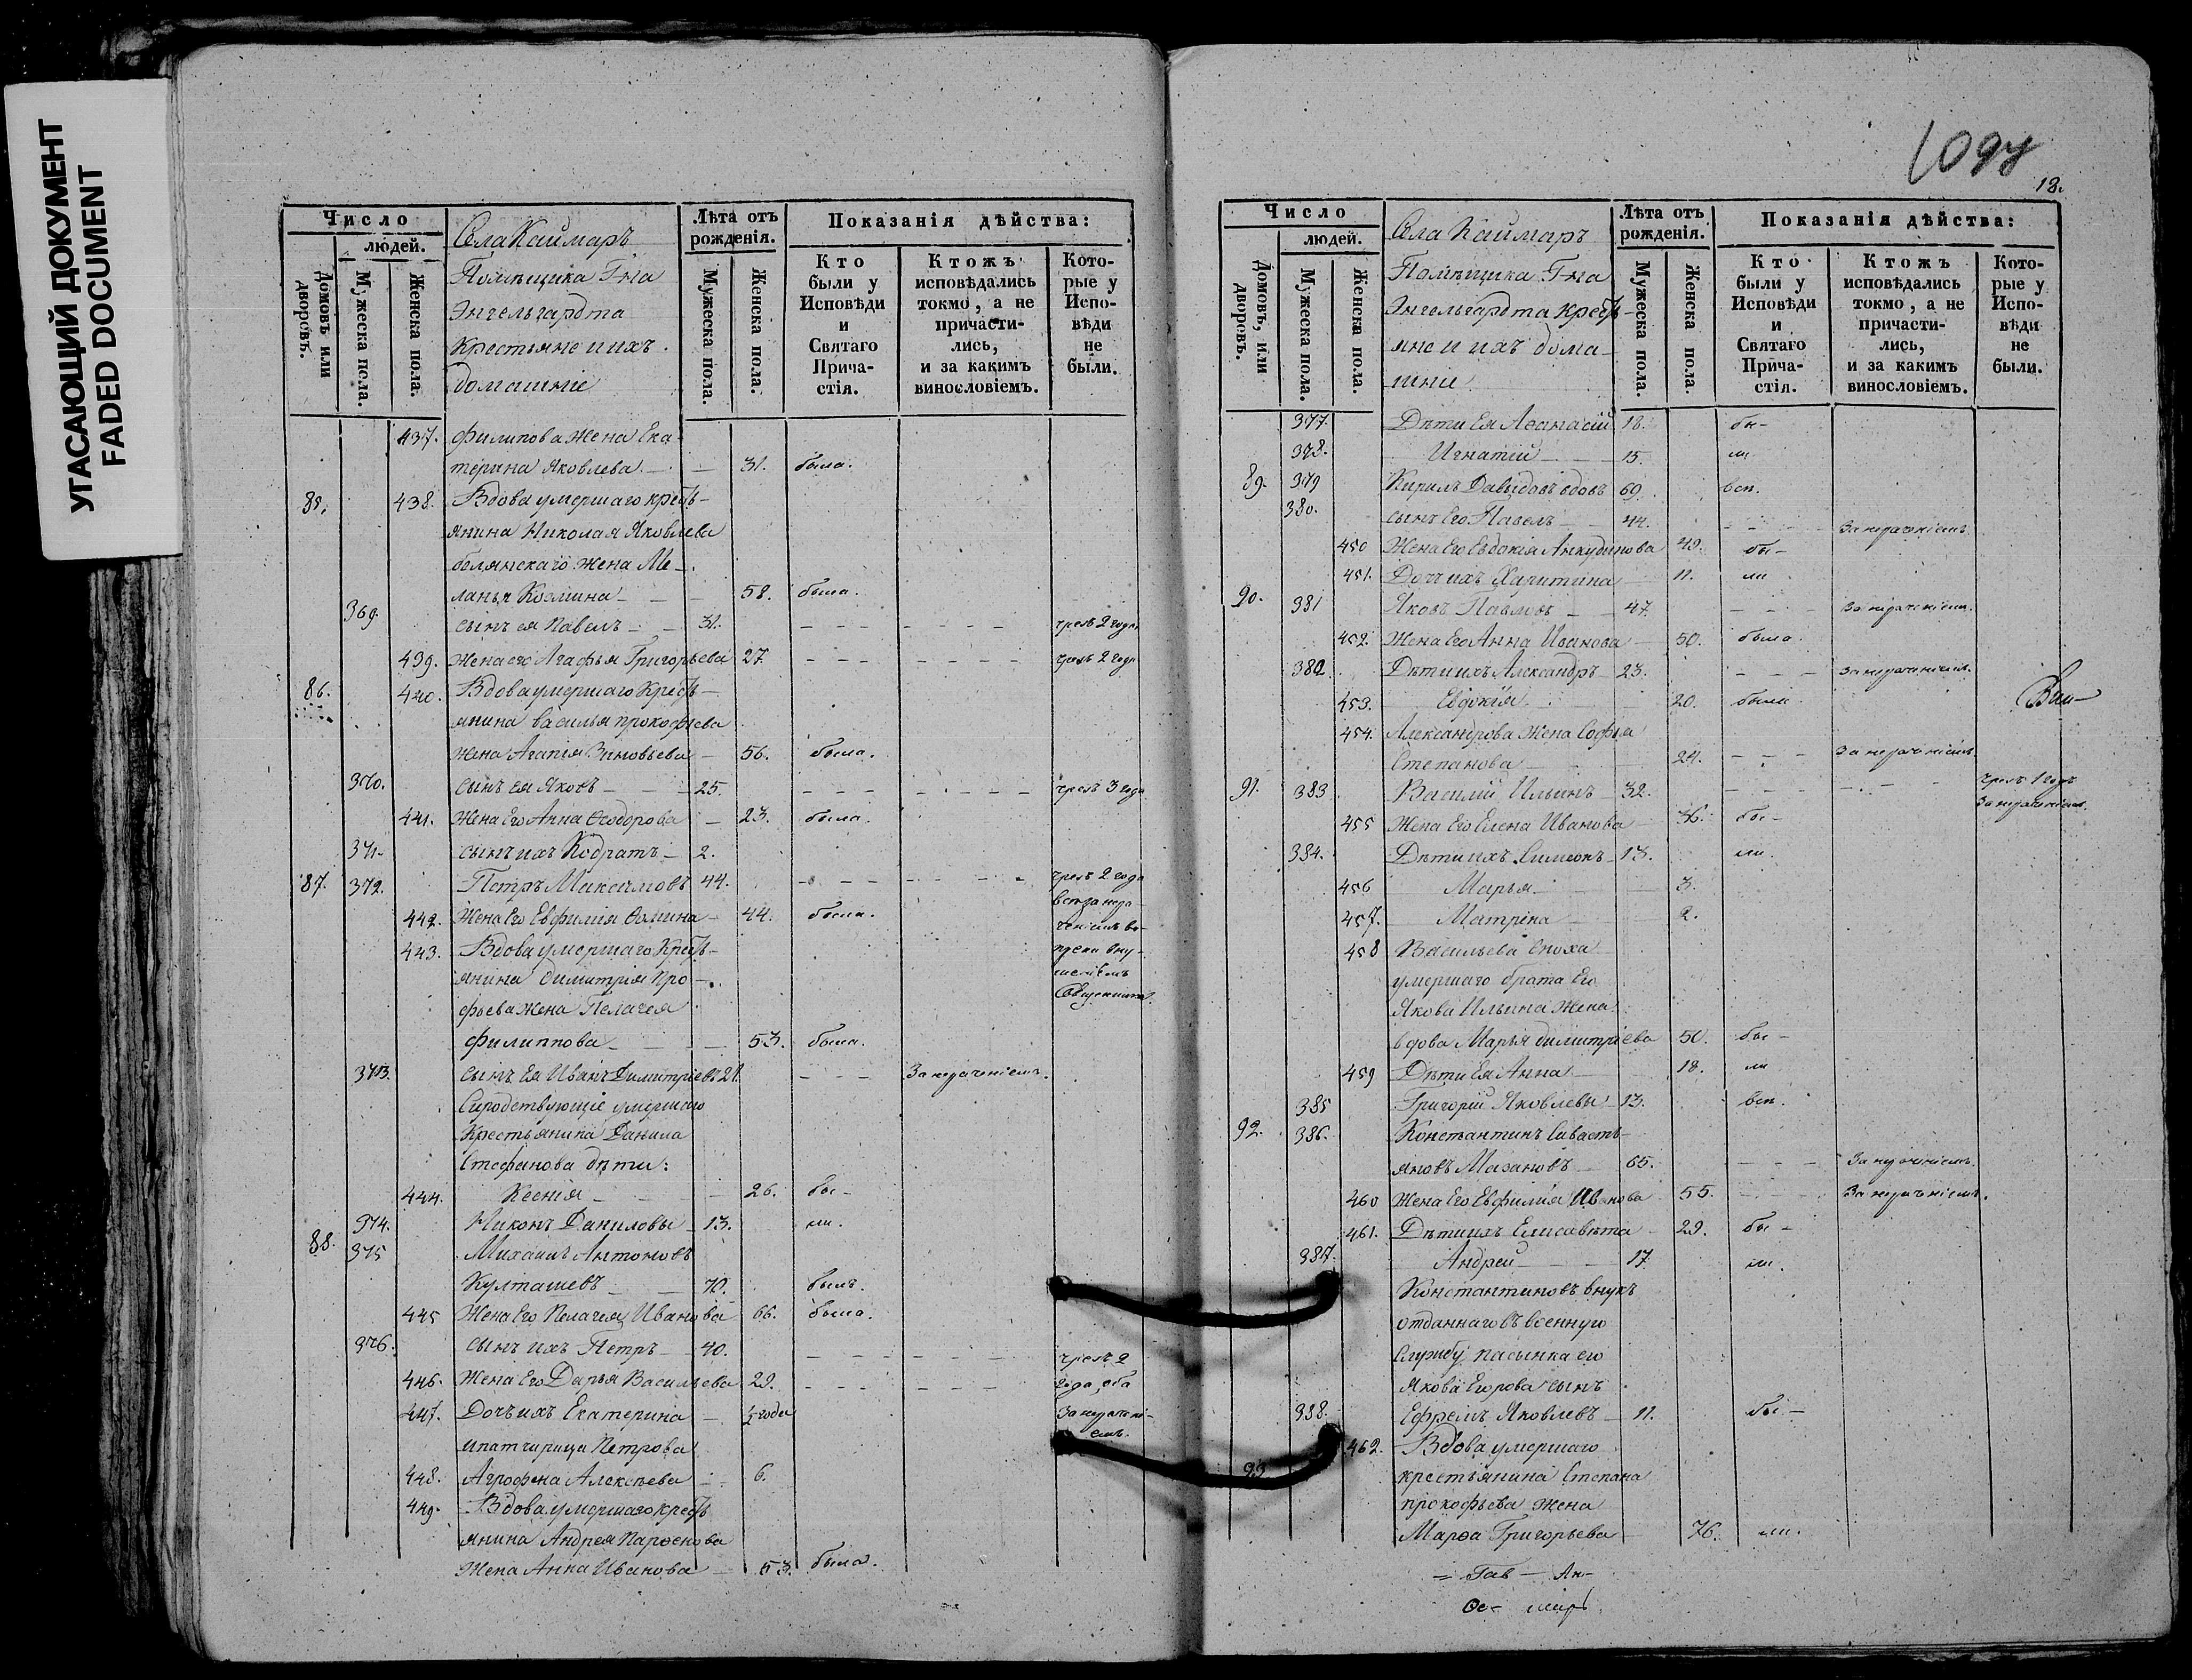 УГАСАЮЩИЙ ДОКУМЕНТ
FADED DOCUMENT
Число
людей.
Домовъ или дворовъ.
Мужеска пола.
Женска пола.
Села Каймаръ
Помѣщика Гна
Энгельгардта
Крестьяне и ихъ
домашніе
Лѣта отъ рожденія.
Мужеска пола.
Женска пола.
Показанія дѣйства:
Кто были у Исповѣди и Святаго Прича-стія.
Ктожъ исповѣдались токмо, а не причасти-лись, и за какимъ винословіемъ.
Кото-рые у Испо-вѣди не были.
437. Филипова жена Ека
терина Яковлева 31. была.
85. 438. Вдова умершаго крест-
янина Николая Яковлева
белянскаго жена Ме-
ланья Козмина 58. была.
369. сынъ ея Павелъ 31. чрезъ 2 года
439. жена его Агафья Григорьева 27. чрезъ 2 года
86. 440. Вдова умершаго Крест-
янина Василья Прокофьева
жена Агапія Зиновьева 56. была.
370. сынъ ея Яковъ 25. чрезъ 3 года
441. жена его Анна Ѳеодорова 23. была.
371. сынъ ихъ Кодратъ 2.
87. 372. Петръ Максимовъ 44. чрезъ 2 года
442. Жена его Евфимія Ѳомина 44. была.
443. Вдова умершаго Крест-
янина Димитрія Про-
фьева жена Пелагея
Филиппова 53. была.
373. сынъ ея Иванъ Димитріевъ 21. За нераченіемъ.
Сиродствующіе умершаго
Крестьянина Данила
Стефанова дѣти:
444. Ксенія 26. бы-
374. Никонъ Даниловы 13. ли.
88. 375 Михаилъ Антоновъ
Култашевъ 70. былъ.
445 Жена его Пелагея Иванова 66. была.
376. сынъ ихъ Петръ 40. чрезъ 2
446. Жена его Дарья Васильева 29. года, оба
447. Дочь ихъ Екатерина 1/2 года За нерачені-
емъ.
Петрова
448. Агрофена Алексѣева 6.
449. Вдова умершаго крест
янина Андрея Парѳенова
Жена Анна Иванова 53. была.
18.
Число
людей.
Домовъ, или дворовъ.
Мужеска пола.
Женска пола.
Села Каймаръ
Помѣщика Гна
Энгельгардта Крест-
яне и ихъ дома-
шніе
Лѣта отъ рожденія.
Мужеска пола.
Женска пола.
Показанія дѣйства:
Кто были у Исповѣди и Святаго Прича-стія.
Ктожъ исповѣдались токмо, а не причасти-лись, и за какимъ винословіемъ.
Кото-рые у Испо-вѣди не были.
377. Дѣти Ея Аѳанасій 18. бы-
378. Игнатій 15. ли
89. 379 Кирилъ Давыдовъ вдовъ 69. всп.
380. сынъ Его Павелъ 44. За нераченіемъ
450 Жена Его Евдокія Анкудинова 49. бы-
451. Дочь ихъ Харитина 11. ли
90. 381 Яковъ Павловъ 47. За нераченіемъ.
452. Жена Его Анна Иванова 50. была.
382. Дѣти ихъ Александръ 23. За нераченіемъ.
453. Евдокія 20. были
454. Александрова Жена Софья
Степанова 24. За нераченіемъ
91. 383 Василій Ильинъ 32. чрезъ 1 годъ
За нераченіем.
455 Жена Его Елена Иванова 36. бы-
384. Дѣти ихъ Симеонъ 13. ли.
456 Марья 3.
457. Матрена 2.
458 Васильева сноха
умершаго брата Его
Якова Ильина Жена
вдова Марья Димитріева 50. бы-
459 Дѣти Ея Анна 18. ли
385 Григорій Яковлевы 13. всп.
92. 386. Константинъ Савасть-
яновъ Мазановъ 65. За нераченіемъ.
460 Жена Его Евфимія Иванова 55. За нераченіемъ.
461. Дѣти ихъ Елисавѣта 29. бы-
387. Андрей 17 ли.
Константиновъ внукъ
отданнаго въ военную
Службу пасынка его
Якова Егорова сынъ
388. Ефремъ Яковлевъ 11. бы-
93 462. Вдова умершаго
крестьянина Степана
прокофьева жена
Марѳа Григорьева 76. ли.